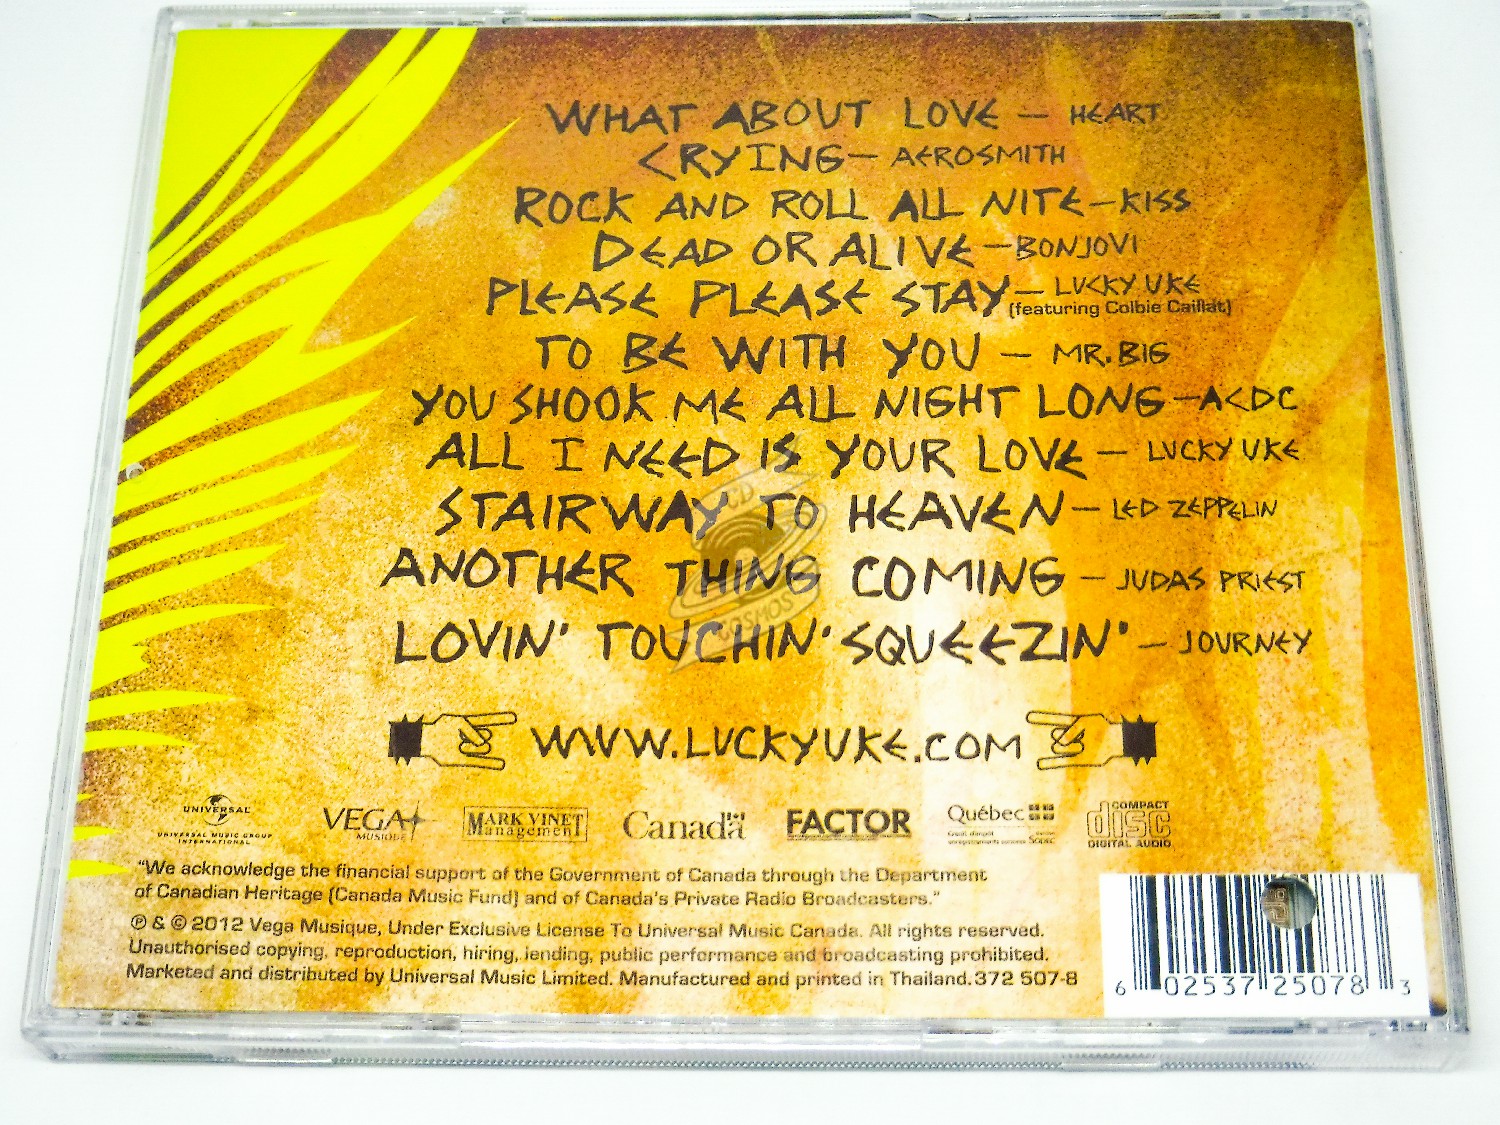 WHAT ABOUT LOVE – HEART
CRYING – AEROSMITH
ROCK AND ROLL ALL NITE – KISS
DEAD OR ALIVE – BONJOVI
PLEASE PLEASE STAY – LUCKY UKE
(featuring Colbie Caillat)
TO BE WITH YOU – MR. BIG
YOU SHOOK ME ALL NIGHT LONG – ACDC
ALL I NEED IS YOUR LOVE – LUCKY UKE
STAIRWAY TO HEAVEN – LED ZEPPELIN
ANOTHER THING COMING – JUDAS PRIEST
LOVIN' TOUCHIN' SQUEEZIN' – JOURNEY
CD
COSMOS
WWW.LUCKYUKE.COM
UNIVERSAL
UNIVERSAL MUSIC GROUP
INTERNATIONAL
VEGA
MUSIQUE
MARK VINET
Management
Canada
FACTOR
Québec
COMPACT
disc
DIGITAL AUDIO
"We acknowledge the financial support of the Government of Canada through the Department
of Canadian Heritage (Canada Music Fund) and of Canada's Private Radio Broadcasters."
℗ & © 2012 Vega Musique, Under Exclusive License To Universal Music Canada. All rights reserved.
Unauthorised copying, reproduction, hiring, lending, public performance and broadcasting prohibited.
Marketed and distributed by Universal Music Limited. Manufactured and printed in Thailand. 372 507-8
6 02537 25078 3